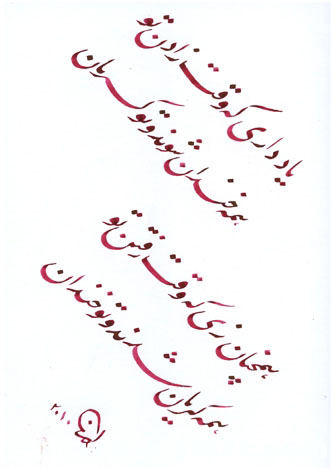 یاد داری که وقت زادن تو
همه خندان شوند و تو گریان
همچنان زی که وقت رفتن تو
همه گریان شوند و تو خندان
۲۰۱۰